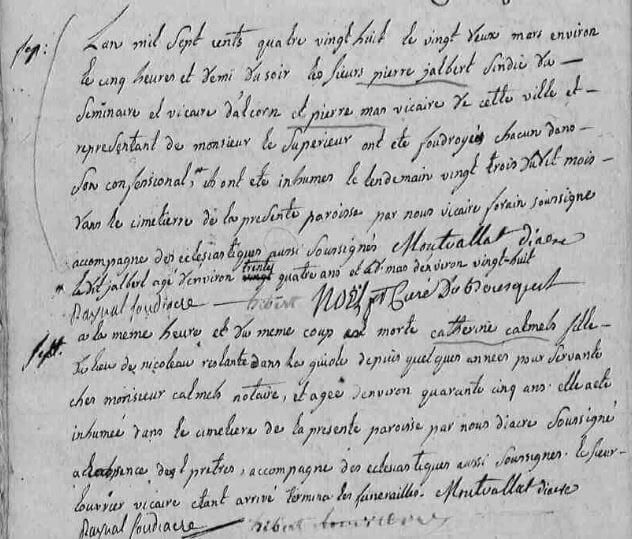 sep:
L'an mil sept cents quatre vingt huit le vingt deux mars environ
le cinq heures et demi du soir les sieurs pierre jalbert sindic du
seminaire et vicaire d'alcorn et pierre mas vicaire de cette ville et
representant de monsieur le superieur ont eté foudroyés chacun dans
son confessional, * ils ont eté inhumés le lendemain vingt trois dudit mois
dans le cimetierre de la presente paroisse par nous vicaire forain soussigné
accompagne des eclesiastiques aussi soussignés Montvallat diacre
* le dit jalbert agé d'environ trente quatre ans et le d. mas d'environ vingt-huit
Raynal soudiacre hibert NOËL pr Curé
a la meme heure et du meme coup est morte catherine calmels fille
sept.
du lieu de nicoleau restante dans la guiole depuis quelques années pour servante
chez monsieur calmels notaire, et agée d'environ quarante cinq ans. elle a eté
inhumée dans le cimetiere de la presente paroisse par nous diacre soussigné
a l'absence des prêtres, accompagne des eclesiastiques aussi soussignes. le sieur
louvrier vicaire etant arrivé termina les funerailles. Montvallat diacre
Raynal soudiacre hibert